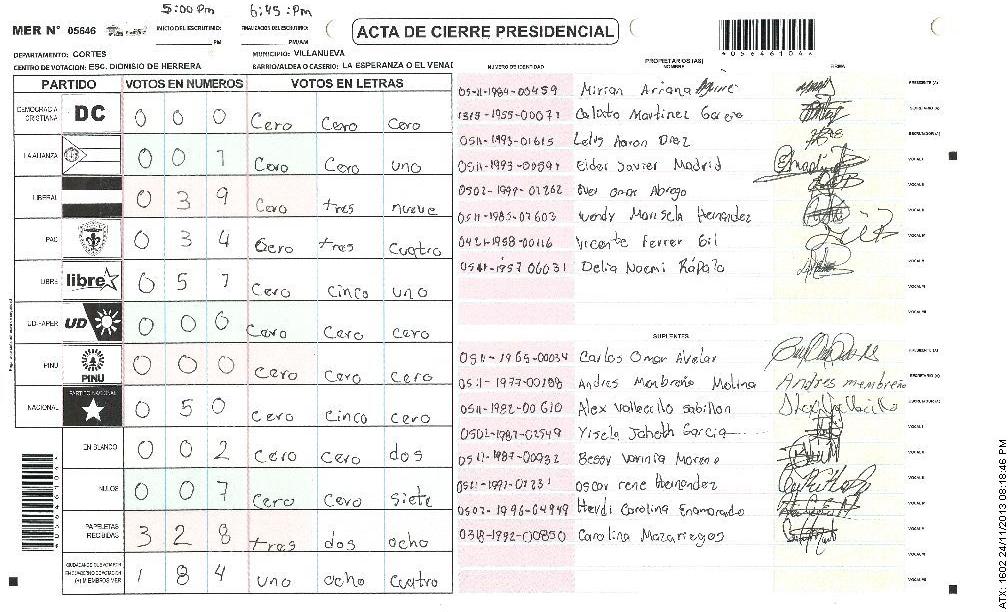 5:00 Pm 6:45 :Pm
MER N° 05646 INICIO DEL ESCRUTINIO: PM FINALIZACION DEL ESCRUTINIO: PM/AM
ACTA DE CIERRE PRESIDENCIAL
DEPARTAMENTO: CORTES MUNICIPIO: VILLANUEVA
CENTRO DE VOTACION: ESC. DIONISIO DE HERRERA BARRIO/ALDEA O CASERIO: LA ESPERANZA O EL VENAD
PARTIDO VOTOS EN NUMEROS VOTOS EN LETRAS
DEMOCRACIA CRISTIANA DC 0 0 0 Cero Cero Cero
LA ALIANZA 0 0 1 Cero Cero uno
LIBERAL 0 3 9 Cero tres nueve
PAC 0 3 4 Cero tres cuatro
LIBRE libre 0 5 1 Cero Cinco uno
UD-FAPER UD 0 0 0 Cero Cero Cero
PINU PINU 0 0 0 Cero Cero Cero
NACIONAL PARTIDO NACIONAL 0 5 0 Cero Cinco cero
EN BLANCO 0 0 2 Cero cero dos
NULOS 0 0 7 Cero Cero siete
PAPELETAS RECIBIDAS 3 2 8 tres dos ocho
(+) MIEMBROS MER 1 8 4 uno ocho cuatro
PROPIETARIOS (AS)
NUMERO DE IDENTIDAD NOMBRE FIRMA
0511-1984-00459 Mirian Ariana PRESIDENTE (A)
1313-1955-00071 Calixto Martinez Garcia SECRETARIO (A)
0511-1993-01615 Lelis Aaron Diaz ESCRUTADOR (A)
0511-1993-00591 Eider Javier Madrid VOCAL I
0502-1999-01262 Omar Abrego VOCAL II
0511-1985-01603 Wendy Marisela Hernandez VOCAL III
0421-1958-00116 Vicente Ferrer Gil VOCAL IV
Delia Noemi Rápalo VOCAL V
VOCAL VI
VOCAL VII
SUPLENTES
0511-1965-00034 Carlos Omar Avelar PRESIDENTE (A)
0511-1977-00188 Andres Membreño Molina Andres membreño SECRETARIO (A)
0511-1982-00610 Alex Vallecillo Sabillon ESCRUTADOR (A)
0502-1987-02549 Yisela Jaheth Garcia VOCAL I
0511-1987-00932 Bessy Varinia Moreno VOCAL II
0511-1991-01231 Oscar rene Hernandez VOCAL III
0502-1996-04949 Heydi Carolina Enamorado VOCAL IV
0318-1992-00850 Carolina Mazariegos VOCAL V
VOCAL VI
VOCAL VII
ATX: 1602 24/11/2013 08:18:46 PM